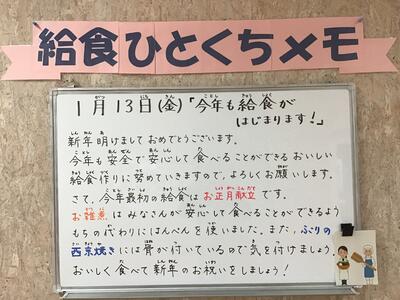 給食ひとくちメモ
1月13日(金)「今年も給食が
はじまります!」
新年明けましておめでとうございます。
今年も安全で安心して食べることができるおいしい
給食作りに努めていきますので、よろしくお願いします。
さて、今年最初の給食はお正月献立です。
お雑煮はみなさんが安心して食べることができるよう
もちの代わりにはんぺんを使いました。また、ぶりの
西京焼きには骨が付いているので気を付けましょう。
おいしく食べて新年のお祝いをしましょう!